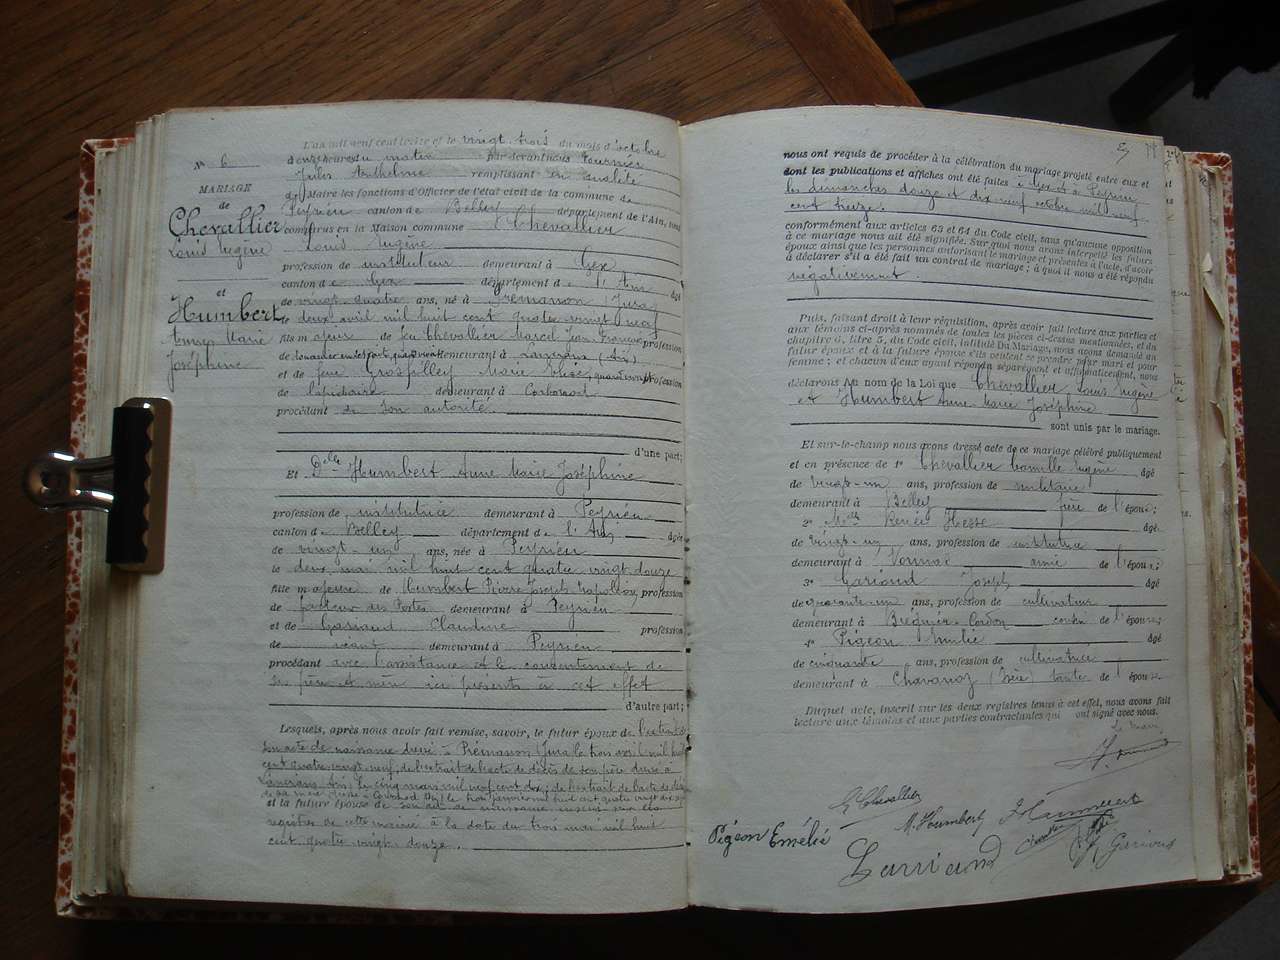 L'an mil neuf cent treize et le vingt trois du mois d'octobre
N° 6
à onze heures du matin par devant nous Fournier
Jules Anthelme remplissant en qualité
MARIAGE
de Maire les fonctions d'Officier de l'état civil de la commune de
de
Peyrieu canton de Belley département de l'Ain, sont
Chevallier
comparus en la Maison commune Chevallier
Louis Eugène
Louis Eugène
profession de instituteur demeurant à Gex
canton de Gex département de l'Ain âgé
et
de vingt-quatre ans, né à Prémanon (Jura)
Humbert
le deux avril mil huit cent quatre vingt neuf
Anne Marie
fils majeur de feu Chevallier Marcel Jean François profession
Joséphine
de demeurant à (Ain)
et de feue Grospilley Marie profession
de lapidaire demeurant à Corbonod
procédant de son autorité.
d'une part;
Et Delle Humbert Anne Marie Joséphine
profession de institutrice demeurant à Peyrieu
canton de Belley département de l'Ain âgée
de vingt-un ans, née à Peyrieu
le deux mai mil huit cent quatre vingt douze
fille majeure de Humbert Pierre Joseph Napoléon, profession
de facteur des Postes demeurant à Peyrieu
et de Garriand Claudine profession
de demeurant à Peyrieu
procédant avec l'assistance et le consentement de
ses père et mère ici présents à cet effet
d'autre part;
Lesquels, après nous avoir fait remise, savoir, le futur époux de l'extrait de
son acte de naissance dressé à Prémanon Jura le trois avril mil huit
cent quatre vingt neuf, de l'extrait de l'acte de décès de son père dressé à
Ain, le cinq mars mil neuf cent dix; de l'extrait de l'acte de décès
de sa mère dressé à Corbonod
et la future épouse de son acte de naissance inscrit sur les
registres de cette mairie à la date du trois mai mil huit
cent quatre vingt douze.
nous ont requis de procéder à la célébration du mariage projeté entre eux et
dont les publications et affiches ont été faites à Gex et à Peyrieu
les dimanches douze et dix neuf octobre mil neuf
cent treize.
conformément aux articles 63 et 64 du Code civil, sans qu'aucune opposition
à ce mariage nous ait été signifiée. Sur quoi nous avons interpellé les futurs
époux ainsi que les personnes autorisant le mariage et présentes à l'acte, d'avoir
à déclarer s'il a été fait un contrat de mariage; à quoi il nous a été répondu
négativement.
Puis, faisant droit à leur réquisition, après avoir fait lecture aux parties et
aux témoins ci-après nommés de toutes les pièces ci-dessus mentionnées, et du
chapitre 6, titre 5, du Code civil, intitulé Du Mariage, nous avons demandé au
futur époux et à la future épouse s'ils veulent se prendre pour mari et pour
femme; et chacun d'eux ayant répondu séparément et affirmativement, nous
déclarons Au nom de la Loi que Chevallier Louis Eugène
et Humbert Anne Marie Joséphine
sont unis par le mariage.
Et sur-le-champ nous avons dressé acte de ce mariage célébré publiquement
et en présence de 1° Chevallier Camille Eugène âgé
de vingt-un ans, profession de militaire
demeurant à Belley frère de l'époux;
2° Melle Renée Hesse âgé
de vingt-un ans, profession de institutrice
demeurant à Vonnas amie de l'épouse;
3° Gariand Joseph âgé
de quarante-un ans, profession de cultivateur
demeurant à Brégnier-Cordon cousin de l'épouse;
4° Pigeon Emélie âgé
de cinquante ans, profession de cultivatrice
demeurant à Chavanoz (Isère) tante de l'épouse
Duquel acte, inscrit sur les deux registres tenus à cet effet, nous avons fait
lecture aux témoins et aux parties contractantes qui ont signé avec nous.
Le Maire
Chevallier
M. Humbert
Pigeon Emélie
Garriand